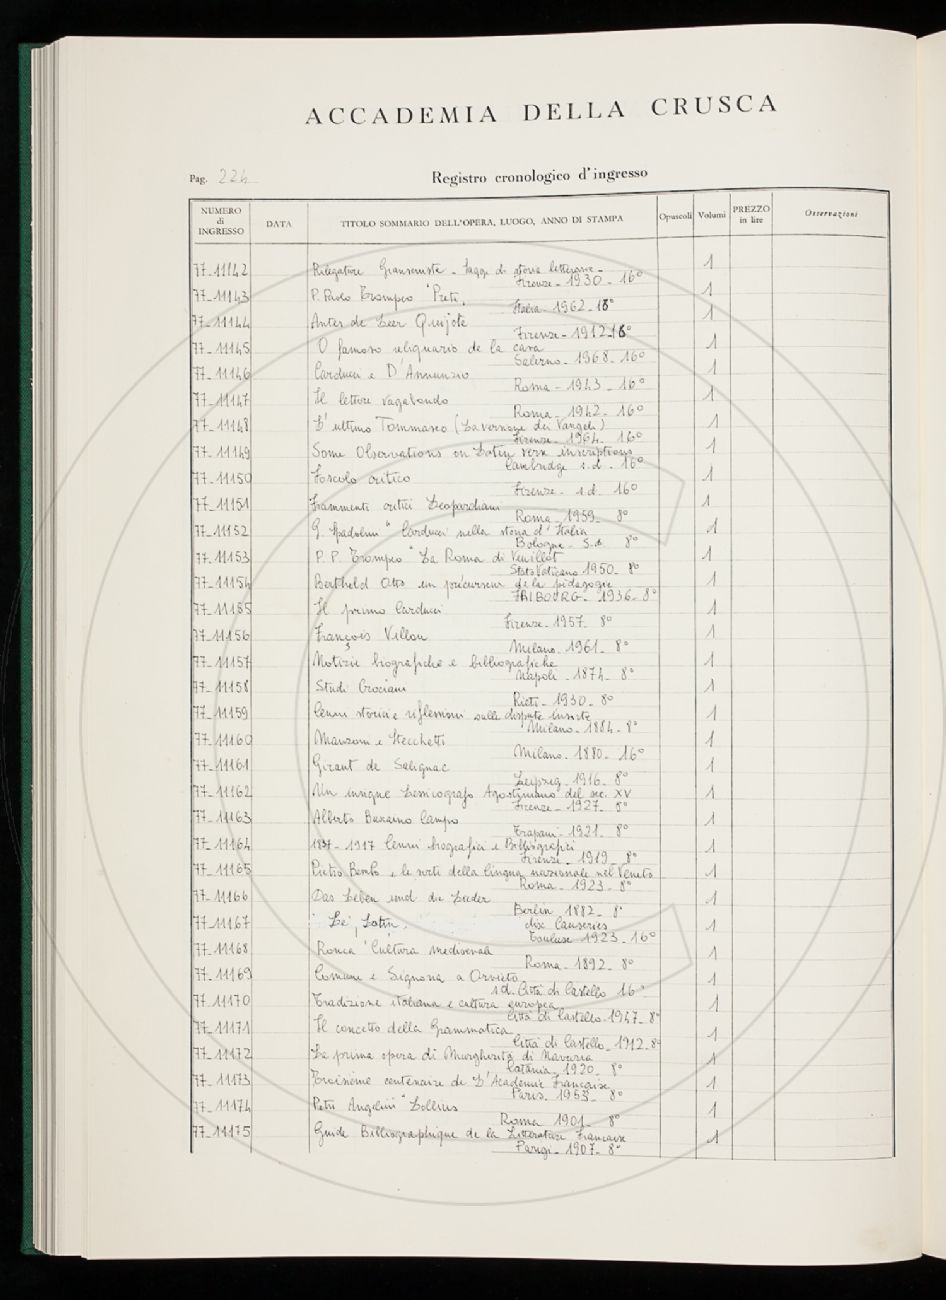 ACCADEMIA DELLA CRUSCA
Pag. 224
Registro cronologico d'ingresso
NUMERO di INGRESSO DATA TITOLO SOMMARIO DELL'OPERA, LUOGO, ANNO DI STAMPA Opuscoli Volumi PREZZO in lire Osservazioni
77-11142 Rilegature Gianseniste - Saggi di storia letteraria - 1
Firenze - 1930 - 16°
77-11143 P. Paolo Trompeo "Preti, 1
Italia - 1962 - 16°
77-11144 Antes de Leer Quijote 1
Firenze - 1912 - 16°
77-11145 O famoso reliquario de la casa 1
Salerno - 1968 - 16°
77-11146 Carducci e D'Annunzio 1
Roma - 1943 - 16°
77-11147 Il lettore vagabondo 1
Roma - 1942 - 16°
77-11148 L'ultimo Tommaseo (La versione dei Vangeli) 1
Firenze - 1964 - 16°
77-11149 Some Observations on Latin vern inscriptions 1
Cambridge s.d. - 16°
77-11150 Foscolo critico 1
Firenze - s.d. 16°
77-11151 Frammenti critici Leopardiani 1
Roma - 1959 - 8°
77-11152 G. Spadolini "Carducci nella storia d'Italia 1
Bologna - S.d. 8°
77-11153 P. P. Trompeo "La Roma di Veuillot 1
Stato Vaticano 1950 - 8°
77-11154 Berthold Otto un précurseur de la pédagogie 1
FRIBOURG - 1936 - 8°
77-11155 Il primo Carducci 1
Firenze - 1957 - 8°
77-11156 François Villon 1
Milano - 1961 - 8°
77-11157 Notizie biografiche e bibliografiche 1
Napoli - 1874 - 8°
77-11158 Studi Crociani 1
Rieti - 1930 - 8°
77-11159 Cenni storici e riflessioni sulle dispute insorte 1
Milano - 1884 - 8°
77-11160 Manzoni e Stecchetti 1
Milano - 1880 - 16°
77-11161 Girant de Salignac 1
Leipzig - 1916 - 8°
77-11162 Un insigne Lessicografo Agostiniano del sec. XV 1
Firenze - 1927 - 8°
77-11163 Alberto Buscaino Campo 1
Trapani - 1921 - 8°
77-11164 1837 - 1917 Cenni biografici e Bibliografici 1
Firenze - 1919 - 8°
77-11165 Pietro Bembo e le sorti della lingua nazionale nel Veneto 1
Roma - 1923 - 8°
77-11166 Das Leben und die Lieder 1
Berlin 1882 - 8°
77-11167 "Le, Latin, dix Causeries 1
Toulouse 1923 - 16°
77-11168 Ronca "Cultura medioevale 1
Roma - 1892 - 8°
77-11169 Comune e Signoria a Orvieto 1
s.d. Città di Castello 16°
77-11170 Tradizione italiana e cultura europea 1
Città di Castello - 1947 - 8°
77-11171 Il concetto della Grammatica 1
Città di Castello - 1912 - 8°
77-11172 La prima opera di Margherita di Navarra 1
Catania - 1920 - 8°
77-11173 Troisième centenaire de L'Academie Française 1
Paris - 1953 - 8°
77-11174 Petri Angelini 1
Roma 1901 - 8°
77-11175 Guide Bibliographique de la Litterature Francaise 1
Parigi - 1907 - 8°